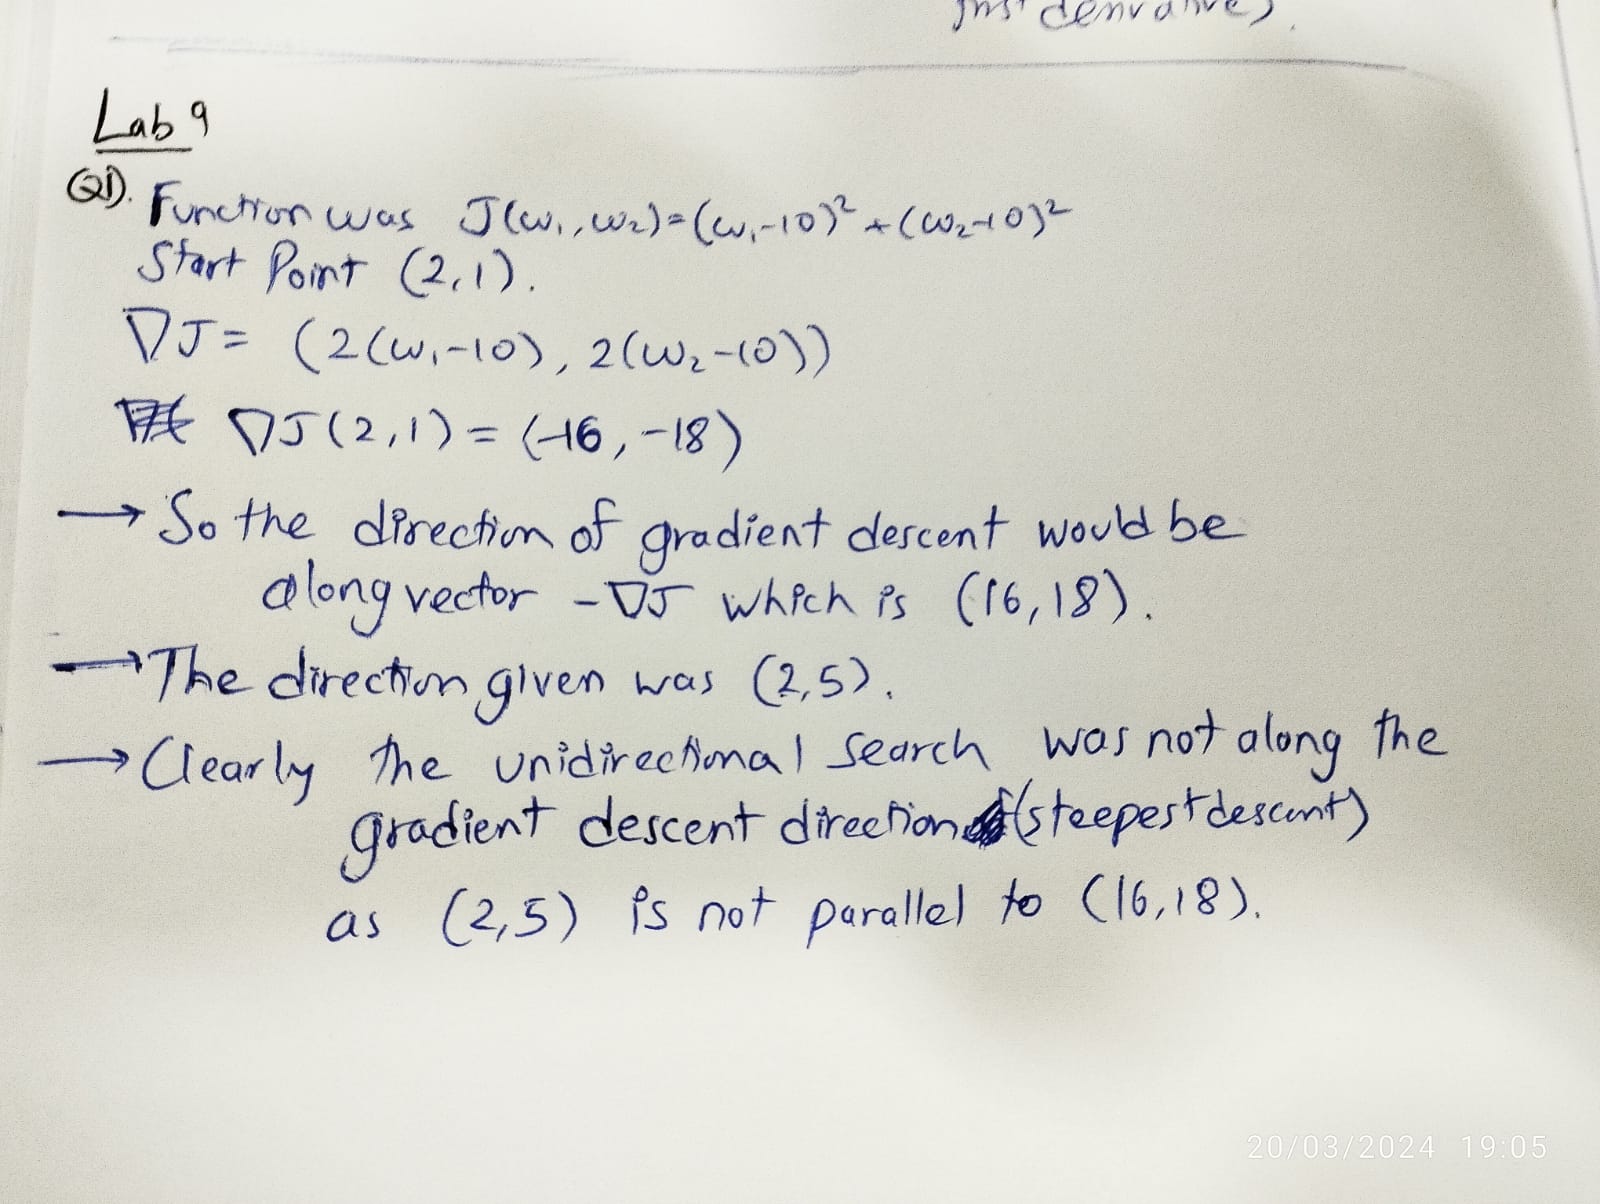 derivative).
Lab 9
Q1). Function was J(ω₁,ω₂)=(ω₁-10)²+(ω₂-10)²
Start Point (2,1).
∇J= (2(ω₁-10), 2(ω₂-10))
∇J(2,1) = (-16,-18)
→ So the direction of gradient descent would be
along vector -∇J which is (16,18).
→ The direction given was (2,5).
→ Clearly the unidirectional search was not along the
gradient descent direction (steepest descent)
as (2,5) is not parallel to (16,18).
20/03/2024 19:05